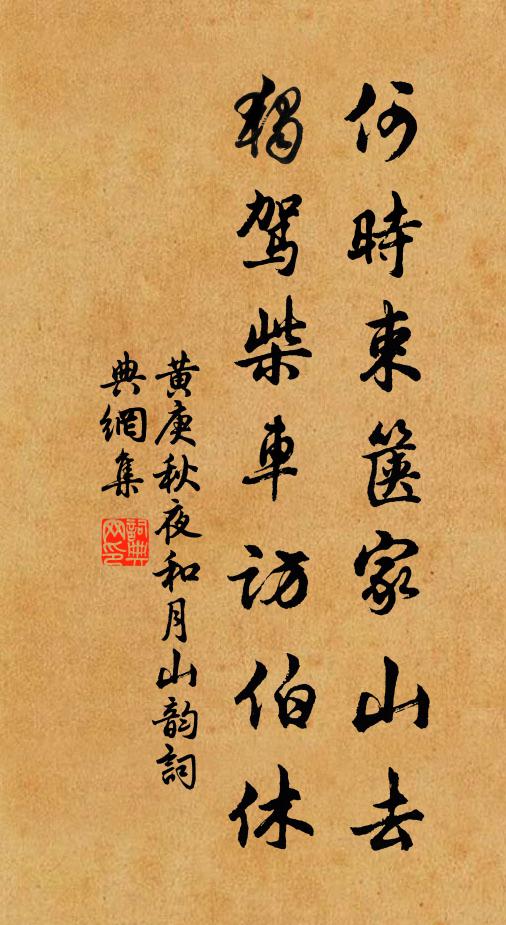 何時束篋家山去
獨駕柴車訪伯休
黄庚秋夜和月山韵詞
典網集
詞典网印